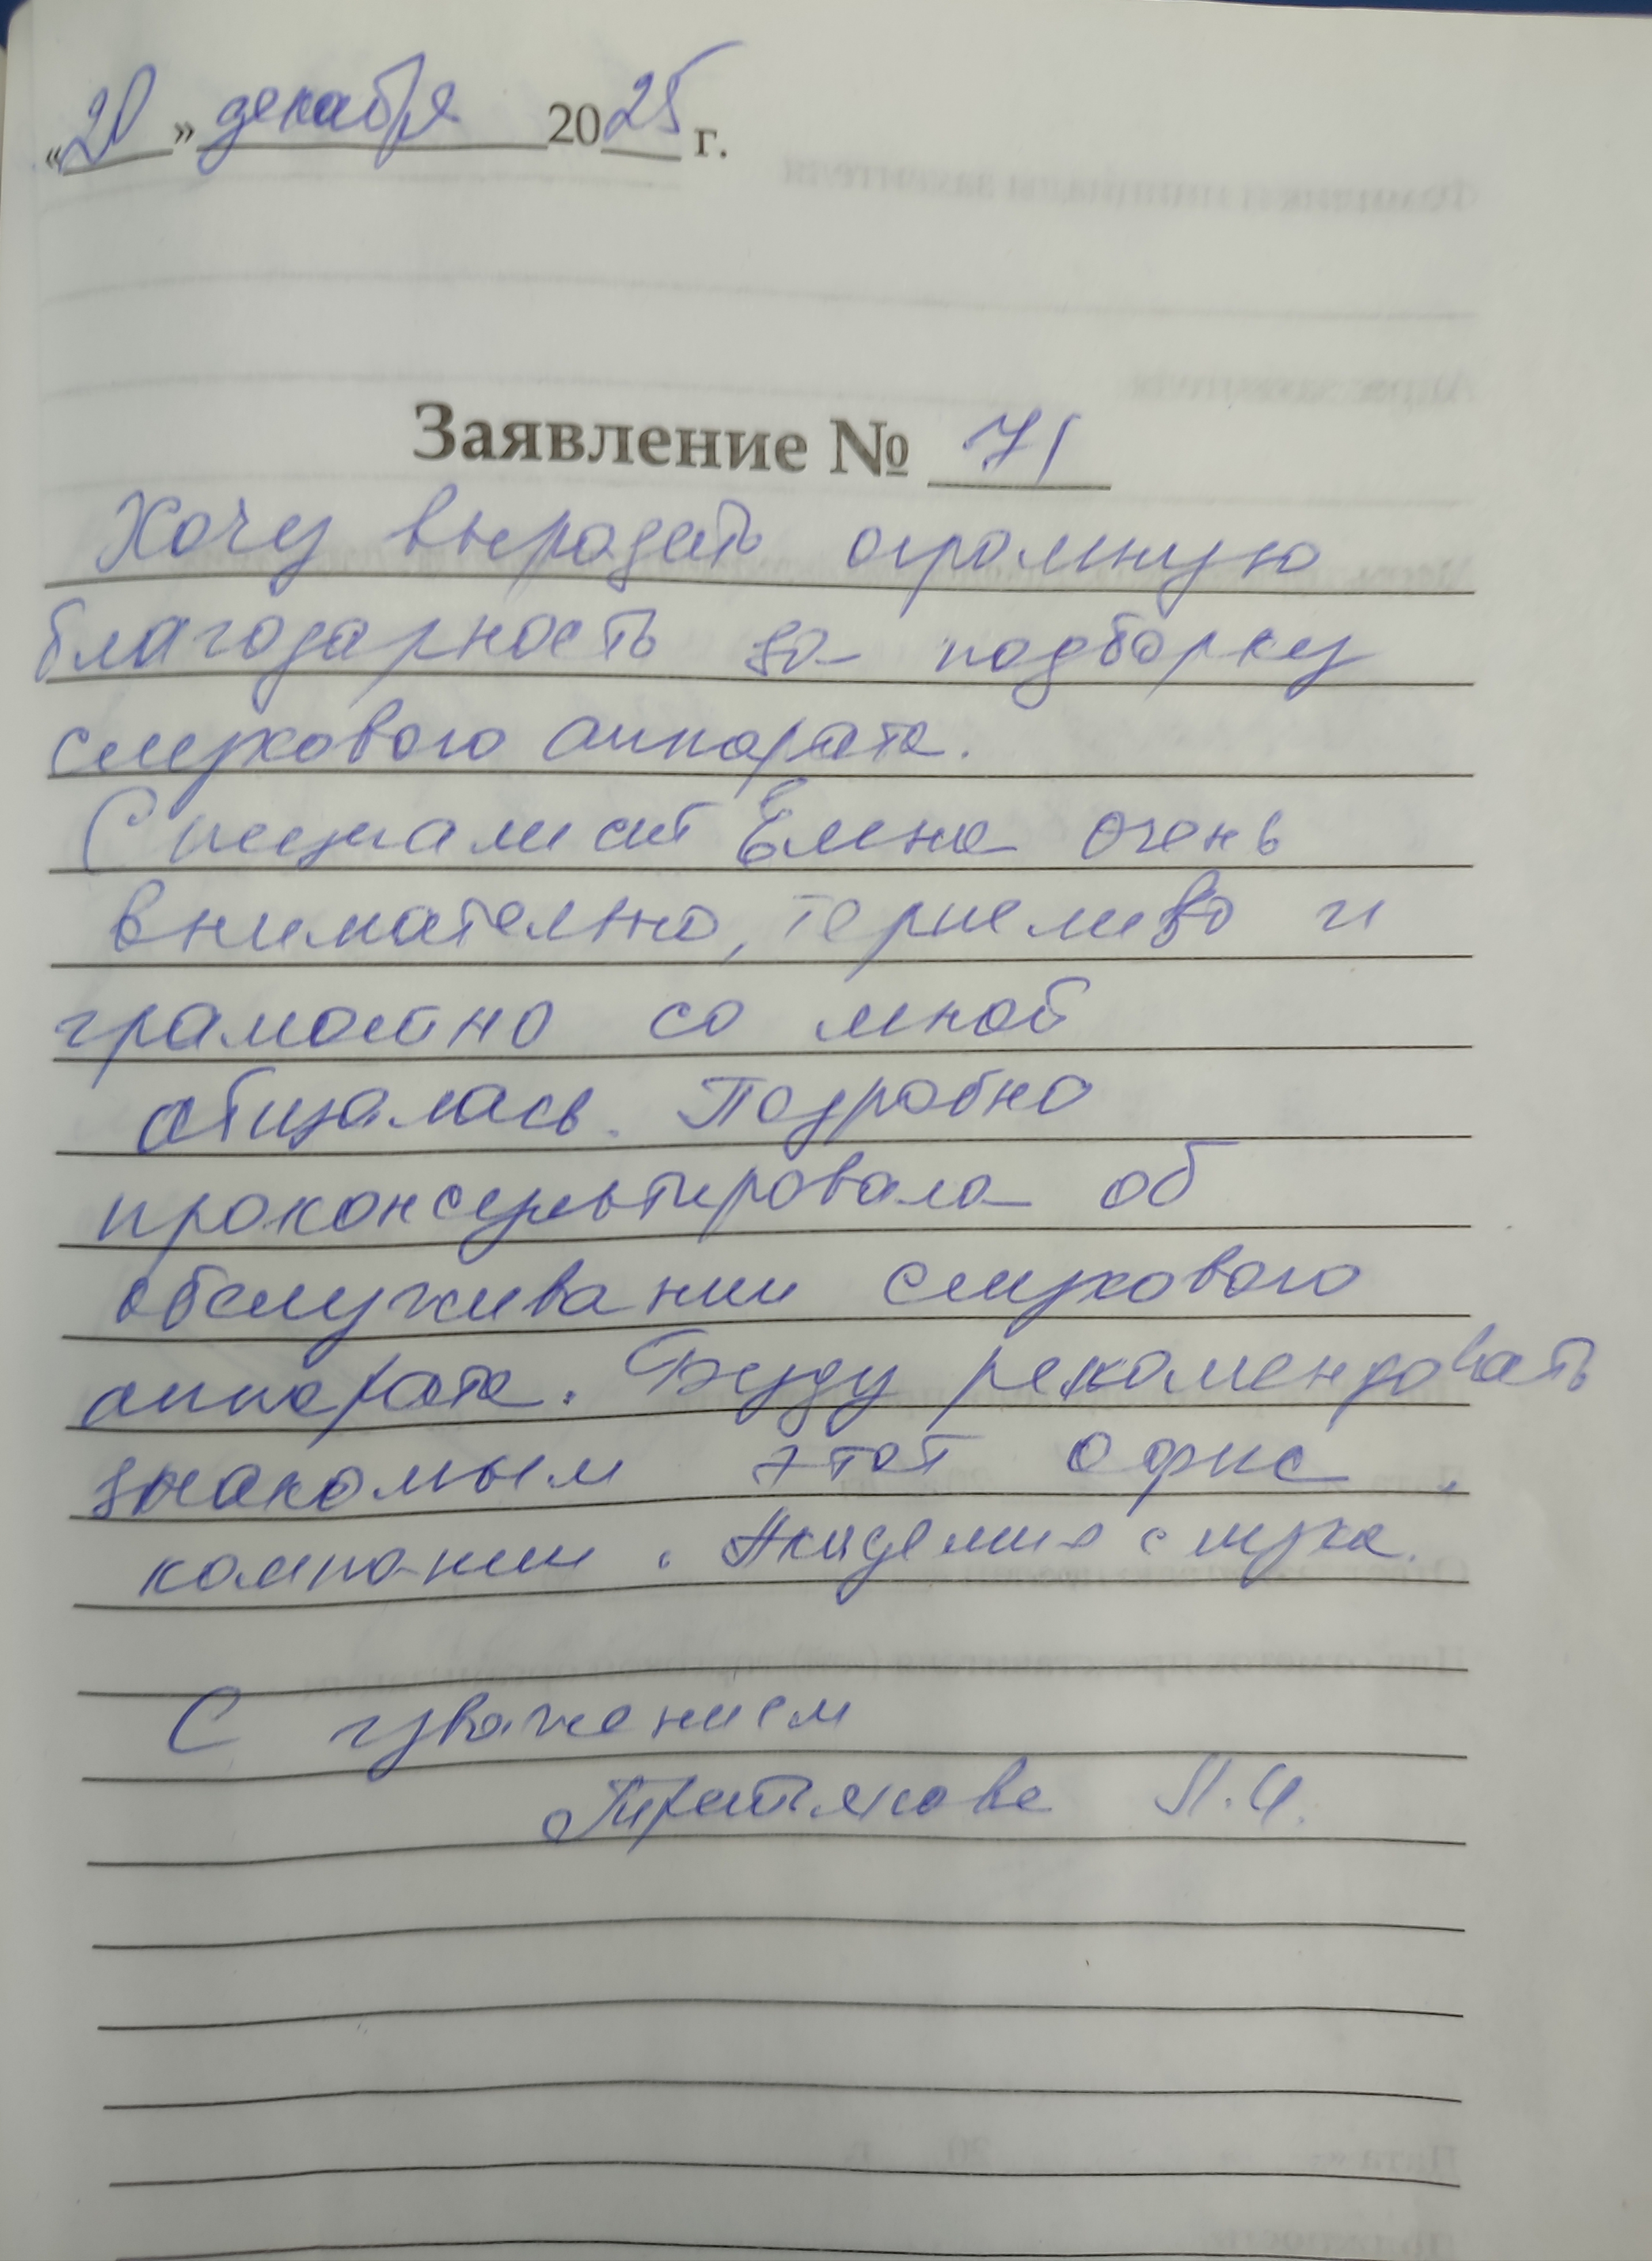 «20» декабря 2025 г.
Заявление № 71
Хочу выразать огромную
благодарность за подборку
слухового аппарата.
Специалист Елена очень
внимателно, терпеливо и
грамотно со мной
общалась. Подробно
проконсультировала об
обслуживании слухового
аппарата. Буду рекомендовать
знакомым этот офис,
компании. Академия слуха.
С уважением
Третьякова